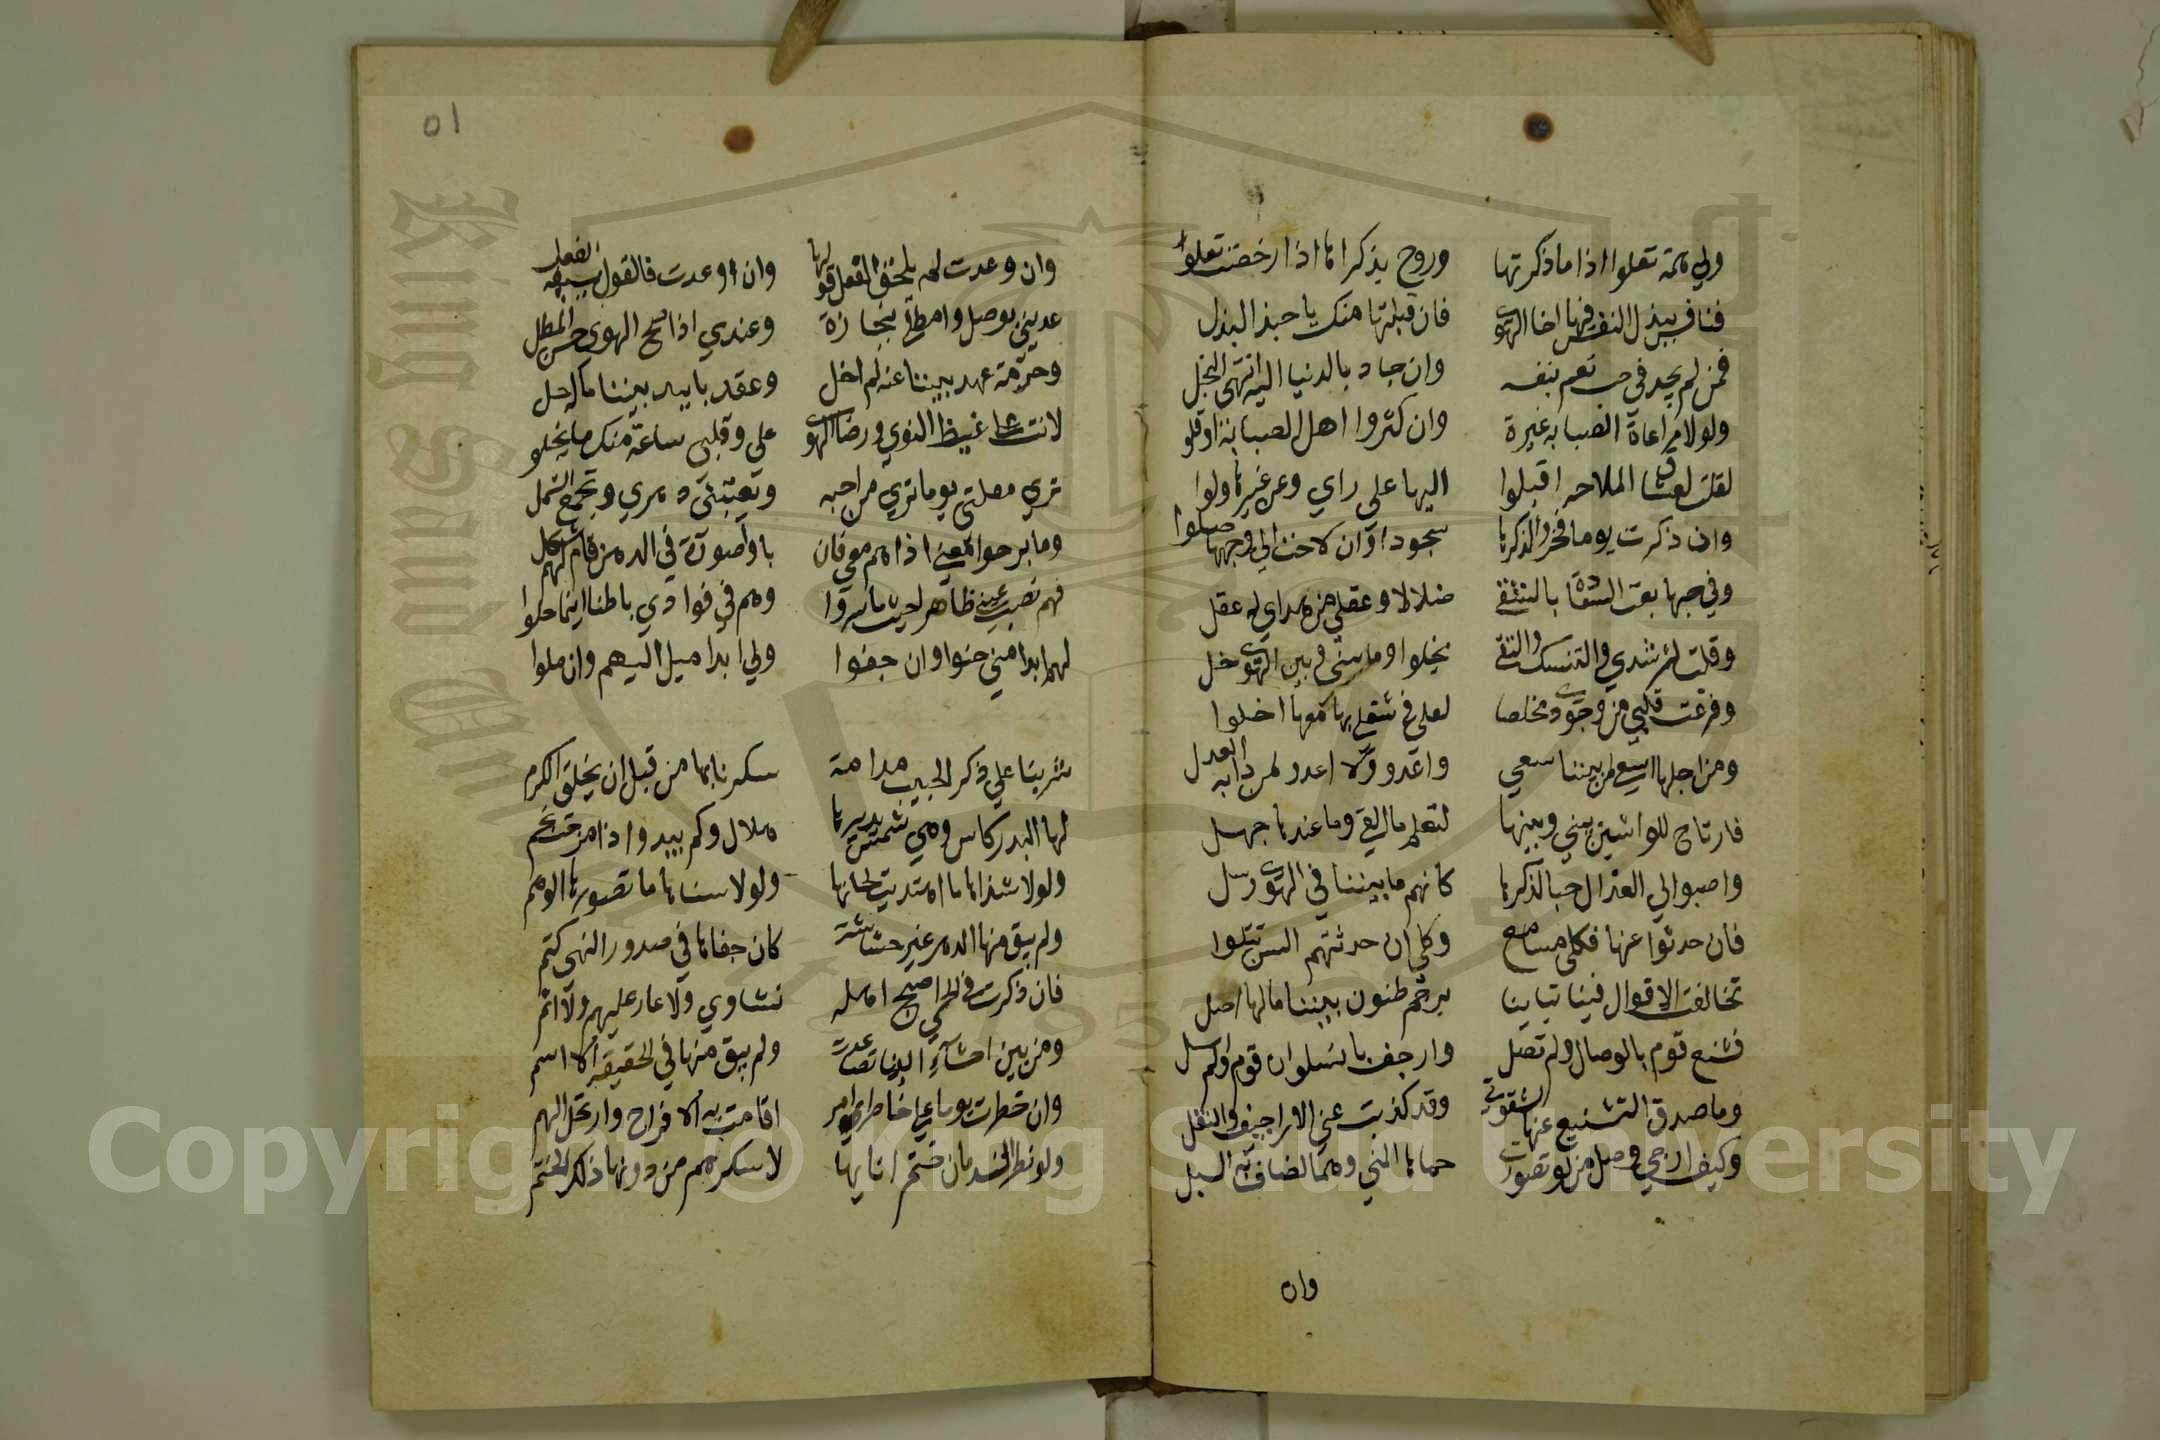 ولي همة تعلوا اذا ما ذكرتها وروح بذكراها اذا رخصت تغلوا
فنافس ببذل النفس فيها اخا الهوى فان قبلتها منك يا حبذا البذل
فمن لم يجد في حب نعم بنفسه وان جاد بالدنيا اليه انتهى البخل
ولولا مراعاة الصبابه غيرة وان كثروا اهل الصبابة او قلو
لقلت لعشاق الملاحه اقبلوا اليها على راي وعن غيرها ولوا
وان ذكرت يوما فخروا لذكرها سجودا وان لاحت الي وجهها صلوا
وفي حبها بعت السعادة بالشقى ضلالا وعقلي من هداي له عقل
وقلت لرشدي والتنسك والتقى تخلوا وما بيني وبين الهوى خلوا
وفرغت قلبي من وجودي مخلصا لعلي في شغلي بها معها اخلوا
ومن اجلها اسعى لمن بيننا سعي واغدو ولا اعدو لمن دابه العدل
فارتاح للواشين بيني وبينها لتعلم ما القى وما عندها جهل
واصبوا الي العذال حبا لذكرها كانهم ما بيننا في الهوى رسل
فان حدثوا عنها فكلي مسامع وكلي ان حدثتهم السن تتلوا
تخالفت الاقوال فينا تباينا برجم ظنون بيننا ما لها اصل
فشنع قوم بالوصال ولم تصل وارجف بالسلوان قوم ولم اسل
وما صدق التشنيع عنها لشقوتي وقد كذبت عني الاراجيف والنقل
وكيف ارجي وصل من لو تصورت حماها المني وهما لضاقت به السبل
وان
٥١
وان وعدت لم يلحق الفعل قولها وان اوعدت فالقول يسبقه الفعل
عديني بوصل وامطلي بنجازه وعندي اذا صح الهوي حسن المطل
وحرمة عهد بيننا عنه لم احل وعقد بايد بيننا ماله حل
لانت على غيظ النوي ورضا الهوى علي وقلبي ساعة منك ما يخلو
تري مقلتي يوما تري من احبه ويعتبني دهري ويجمع الشمل
وما برحوا معني اذا هم معي فان ناوا صورة في الذهن قام لهم شكل
فهم نصب عيني ظاهرا حيث ما سروا وهم في فوادي باطنا اينما حلوا
لهم ابدا مني حنوا وان جفوا ولي ابدا ميل اليهم وان ملوا
شربنا علي ذكر الحبيب مدامة سكرنا بها من قبل ان يخلق الكرم
لها البدر كاس وهي شمس يديرها هلال وكم يبدوا اذا مزجت نجم
ولولا شذاها ما اهتديت لحانها ولولا سناها ما تصورها الوهم
ولم يبق منها الدهر غير حشاشة كان خفاها في صدور النهى كتم
فان ذكرت في الحي اصبح اهله نشاوي ولا عار عليهم ولا اثم
ومن بين احشاء الدنان تصاعدت ولم يبق منها في الحقيقه الا اسم
وان خطرت يوما علي خاطر امرء اقامت به الافراح وارتحل الهم
ولو نظر الندمان ختم انايها لاسكرهم من دونها ذلك الختم